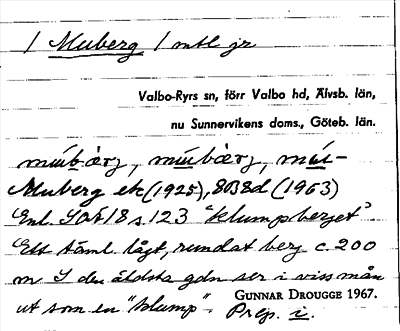 / Muberg / mtl jr
Valbo-Ryrs sn, förr Valbo hd, Älvsb. län,
nu Sunnervikens doms., Göteb. län.
Muberg ek (1925), 8B8d (1963)
Enl. SOÄ 18 s. 123 "klumpberget".
Ett täml. lågt, rundat berg c. 200
m S den äldsta gdn ser i viss mån
ut som en "klump". Prep. i.
GUNNAR DROUGGE 1967.